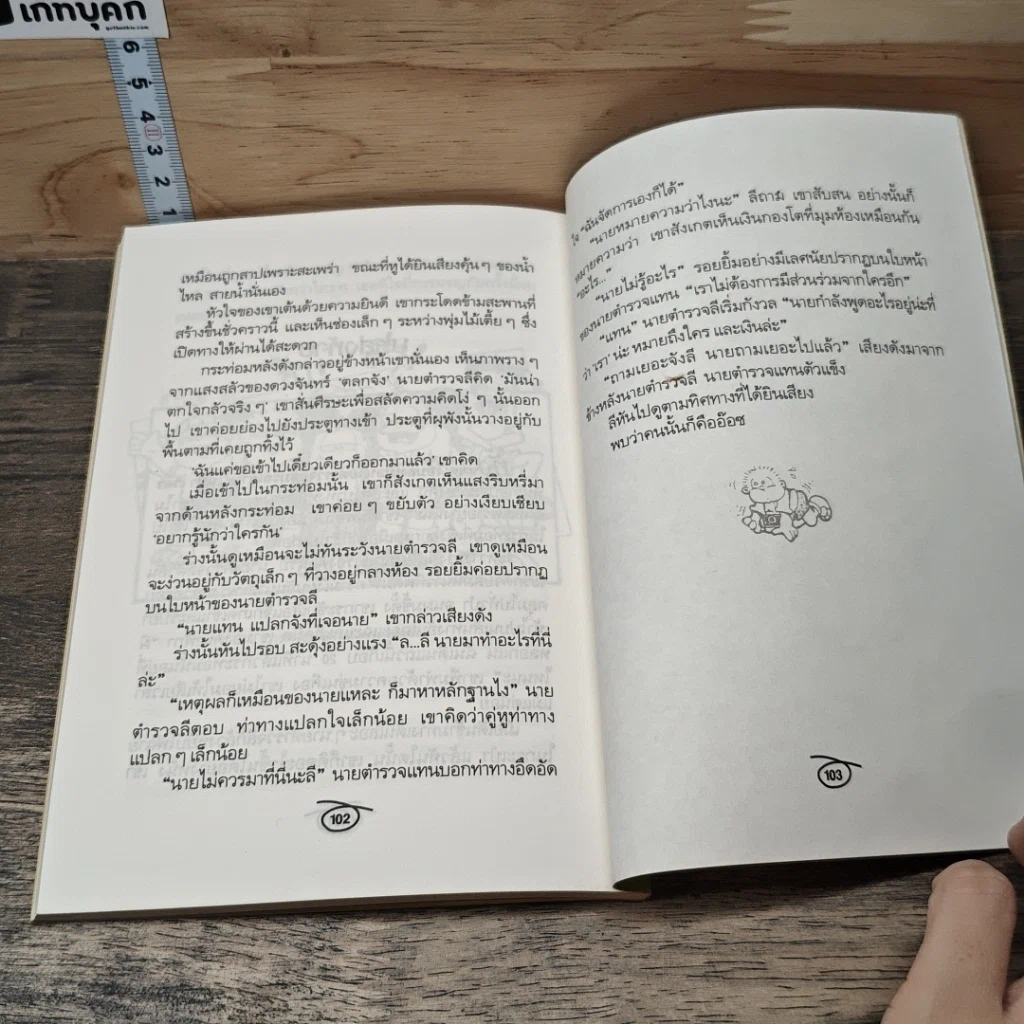 เกทบุคก
6
5
4
3
2
1
เหมือนถูกสาปเพราะสะเพร่า ขณะที่หูได้ยินเสียงคุ้นๆ ของน้ำ
ไหล สายน้ำนั่นเอง
หัวใจของเขาเต้นด้วยความยินดี เขากระโดดข้ามสะพานที่
สร้างขึ้นชั่วคราวนี้ และเห็นช่องเล็ก ๆ ระหว่างพุ่มไม้เตี้ย ๆ ซึ่ง
เปิดทางให้ผ่านได้สะดวก
กระท่อมหลังดังกล่าวอยู่ข้างหน้าเขานั่นเอง เห็นภาพราง ๆ
จากแสงสลัวของดวงจันทร์ 'ตลกจัง' นายตำรวจลีคิด 'มันน่า
ตกใจกลัวจริง ๆ' เขาสั่นศีรษะเพื่อสลัดความคิดโง่ ๆ นั้นออก
ไป เขาค่อยย่องไปยังประตูทางเข้า ประตูที่ผุพังนั้นวางอยู่กับ
พื้นตามที่เคยถูกทิ้งไว้
'ฉันแค่ขอเข้าไปเดี๋ยวเดียวก็ออกมาแล้ว' เขาคิด
เมื่อเข้าไปในกระท่อมนั้น เขาก็สังเกตเห็นแสงริบหรี่มา
จากด้านหลังกระท่อม เขาค่อย ๆ ขยับตัว อย่างเงียบเชียบ
'อยากรู้นักว่าใครกัน'
ร่างนั้นดูเหมือนจะไม่ทันระวังนายตำรวจลี เขาดูเหมือน
จะง่วนอยู่กับวัตถุเล็ก ๆ ที่วางอยู่กลางห้อง รอยยิ้มค่อยปรากฏ
บนใบหน้าของนายตำรวจลี
"นายแทน แปลกจังที่เจอนาย" เขากล่าวเสียงดัง
ร่างนั้นหันไปรอบ สะดุ้งอย่างแรง "ล...ลี นายมาทำอะไรที่นี่
ล่ะ"
"เหตุผลก็เหมือนของนายแหละ ก็มาหาหลักฐานไง" นาย
ตำรวจลีตอบ ท่าทางแปลกใจเล็กน้อย เขาคิดว่าคู่หูท่าทาง
แปลก ๆ เล็กน้อย
"นายไม่ควรมาที่นี่นะลี" นายตำรวจแทนบอกท่าทางอึดอัด
102
ใจ "ฉันจัดการเองก็ได้"
"นายหมายความว่าไงนะ" ลีถาม เขาสับสน อย่างนั้นก็
หมายความว่า เขาสังเกตเห็นเงินกองโตที่มุมห้องเหมือนกัน
"อะไร..."
"นายไม่รู้อะไร" รอยยิ้มอย่างมีเลศนัยปรากฏบนใบหน้า
ของนายตำรวจแทน "เราไม่ต้องการมีส่วนร่วมจากใครอีก"
"แทน" นายตำรวจลีเริ่มกังวล "นายกำลังพูดอะไรอยู่น่ะที่
ว่า 'เรา' น่ะ หมายถึงใคร และเงินล่ะ"
"ถามเยอะจังลี นายถามเยอะไปแล้ว" เสียงดังมาจาก
ข้างหลังนายตำรวจลี นายตำรวจแทนตัวแข็ง
ลีหันไปดูตามทิศทางที่ได้ยินเสียง
พบว่าคนนั้นก็คืออ๊อซ
103